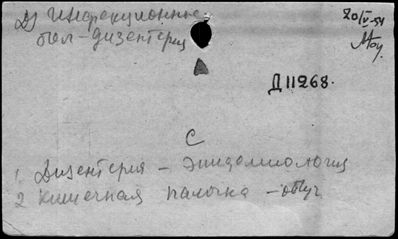 Д) Инфекционные
бол - дизентерия
20/V-54
Д 11268.
С
1. Дизентерия - эпидемиология
2 Кишечная палочка -